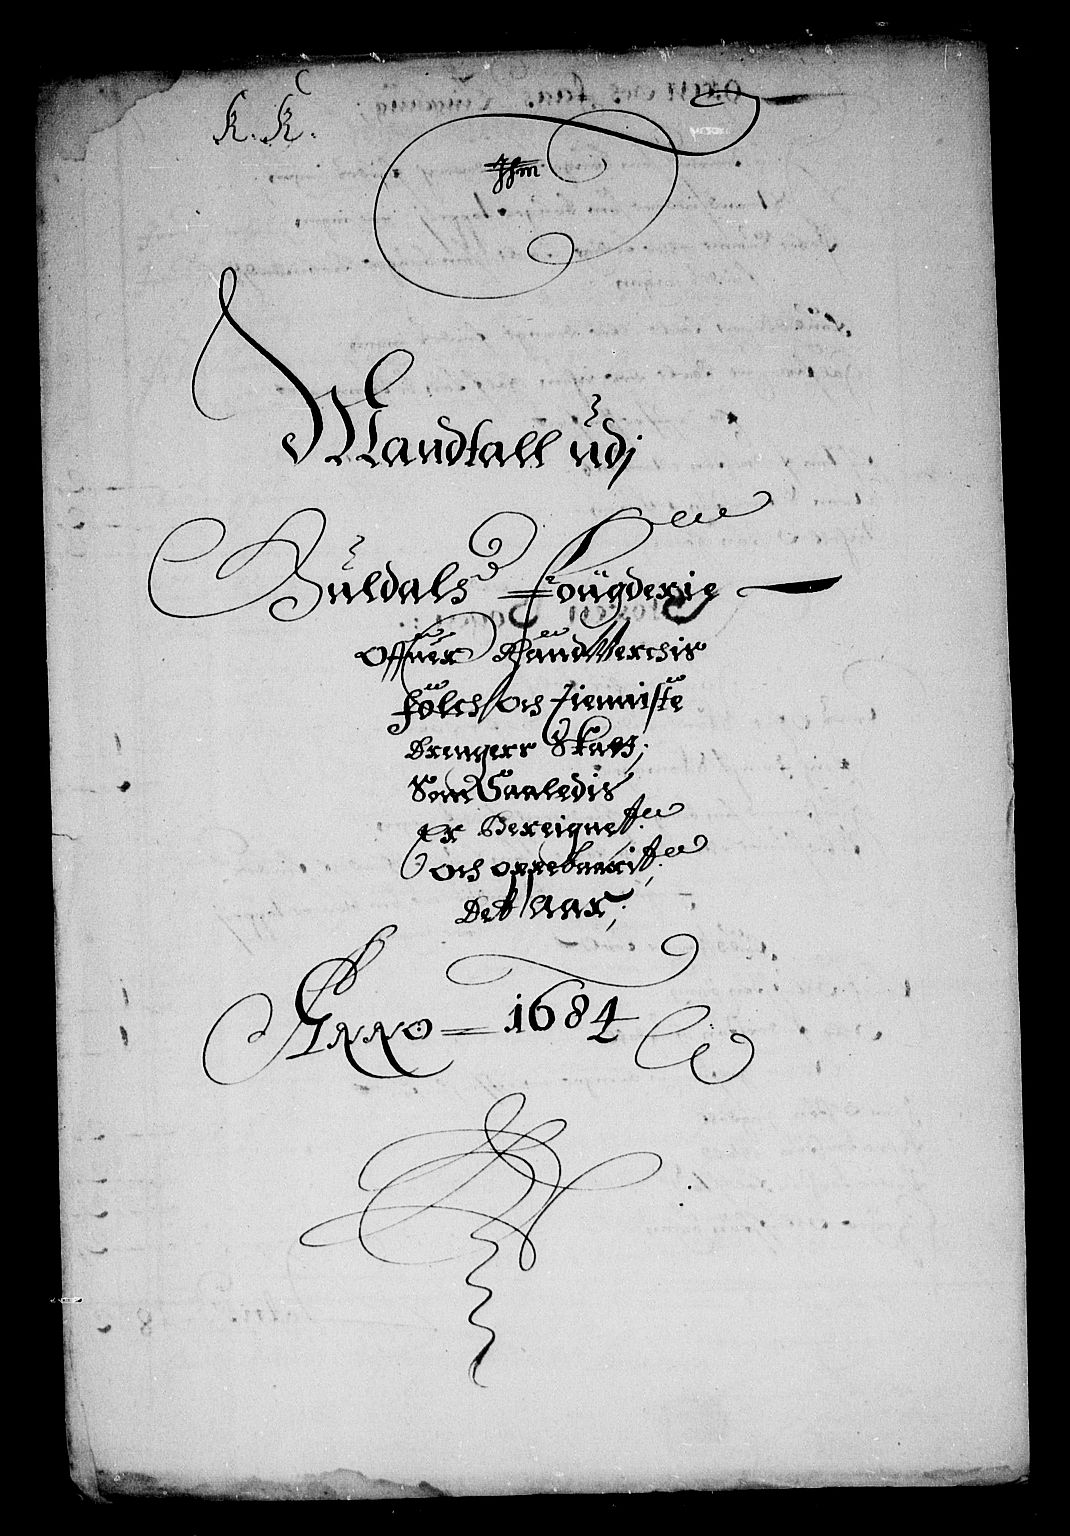 K. K.
Mandtall udj
Guldals Fougderie
Offuer Haand Verchis
Folch och Tienniste
Drengers Skatt;
Som Saaledis
Er Bereignet
och oppebaarit,
Det Aar;
Anno 1684